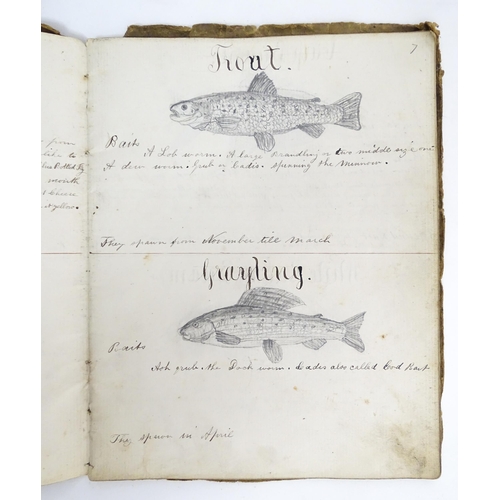 7
Trout.
Baits
A Lob worm. A large Brandling or two middle size one
A dew worm. Grub or Cadis. spinning the Minnow.
They spawn from November till March
Grayling.
Baits
Ash grub. the Dock worm. Cadis also called Cod Bait
They spawn in April